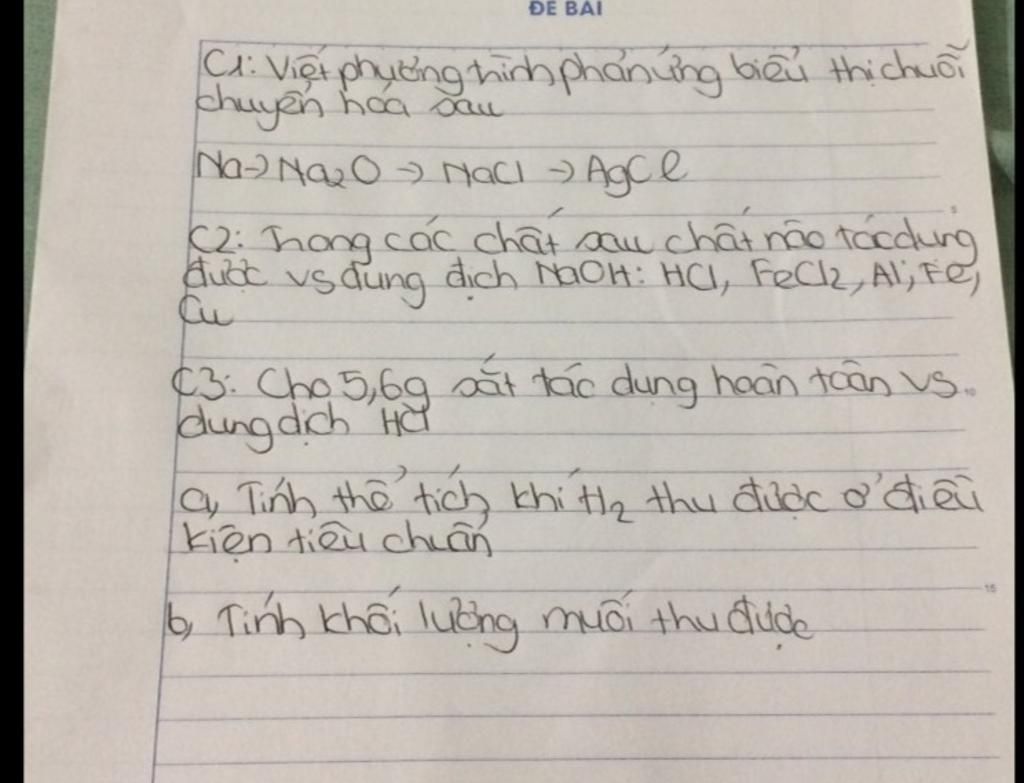 ĐỀ BÀI
C1: Viết phương trình phản ứng biểu thị chuỗi
chuyển hóa sau
Na → Na2O → NaCl → AgCl
C2: Trong các chất sau chất nào tác dụng
được vs dung dịch NaOH: HCl, FeCl2, Al, Fe,
Cu
C3: Cho 5,6g sắt tác dụng hoàn toàn vs
dung dịch HCl
a, Tính thể tích khí H2 thu được ở điều
kiện tiêu chuẩn
b, Tính khối lượng muối thu được